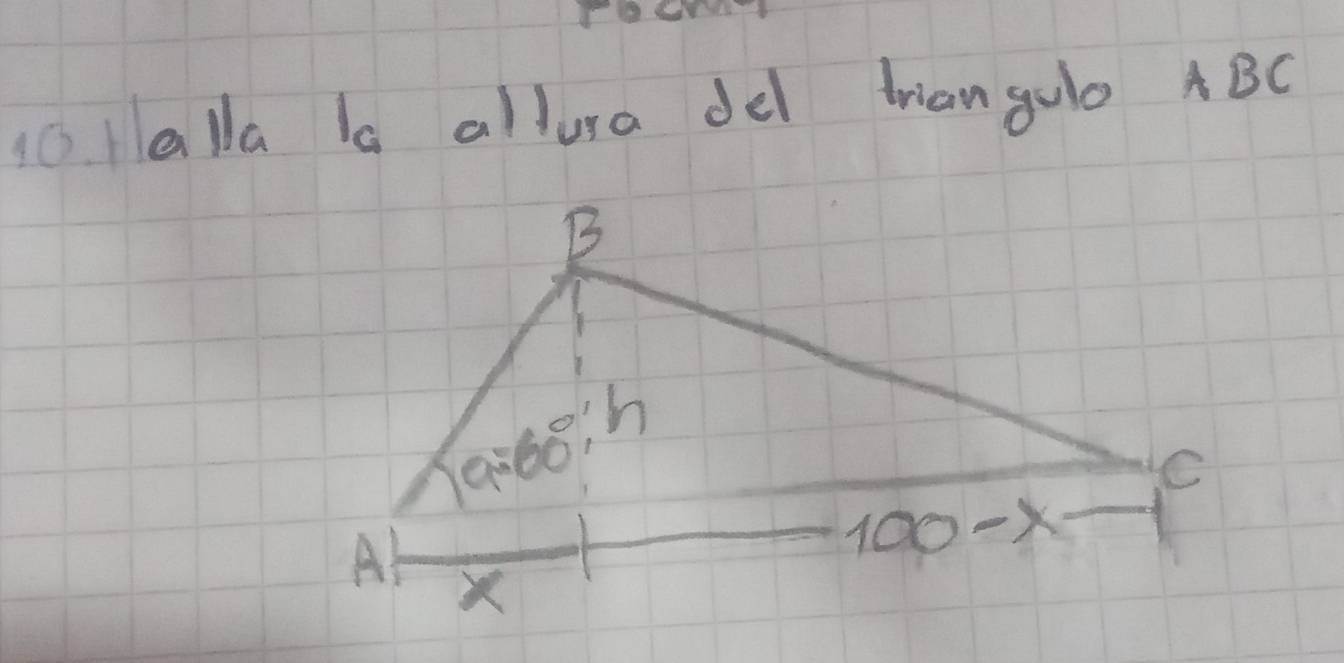 10. Halla la altura del triangulo ABC
B
a=60° h
C
A
x
100-x